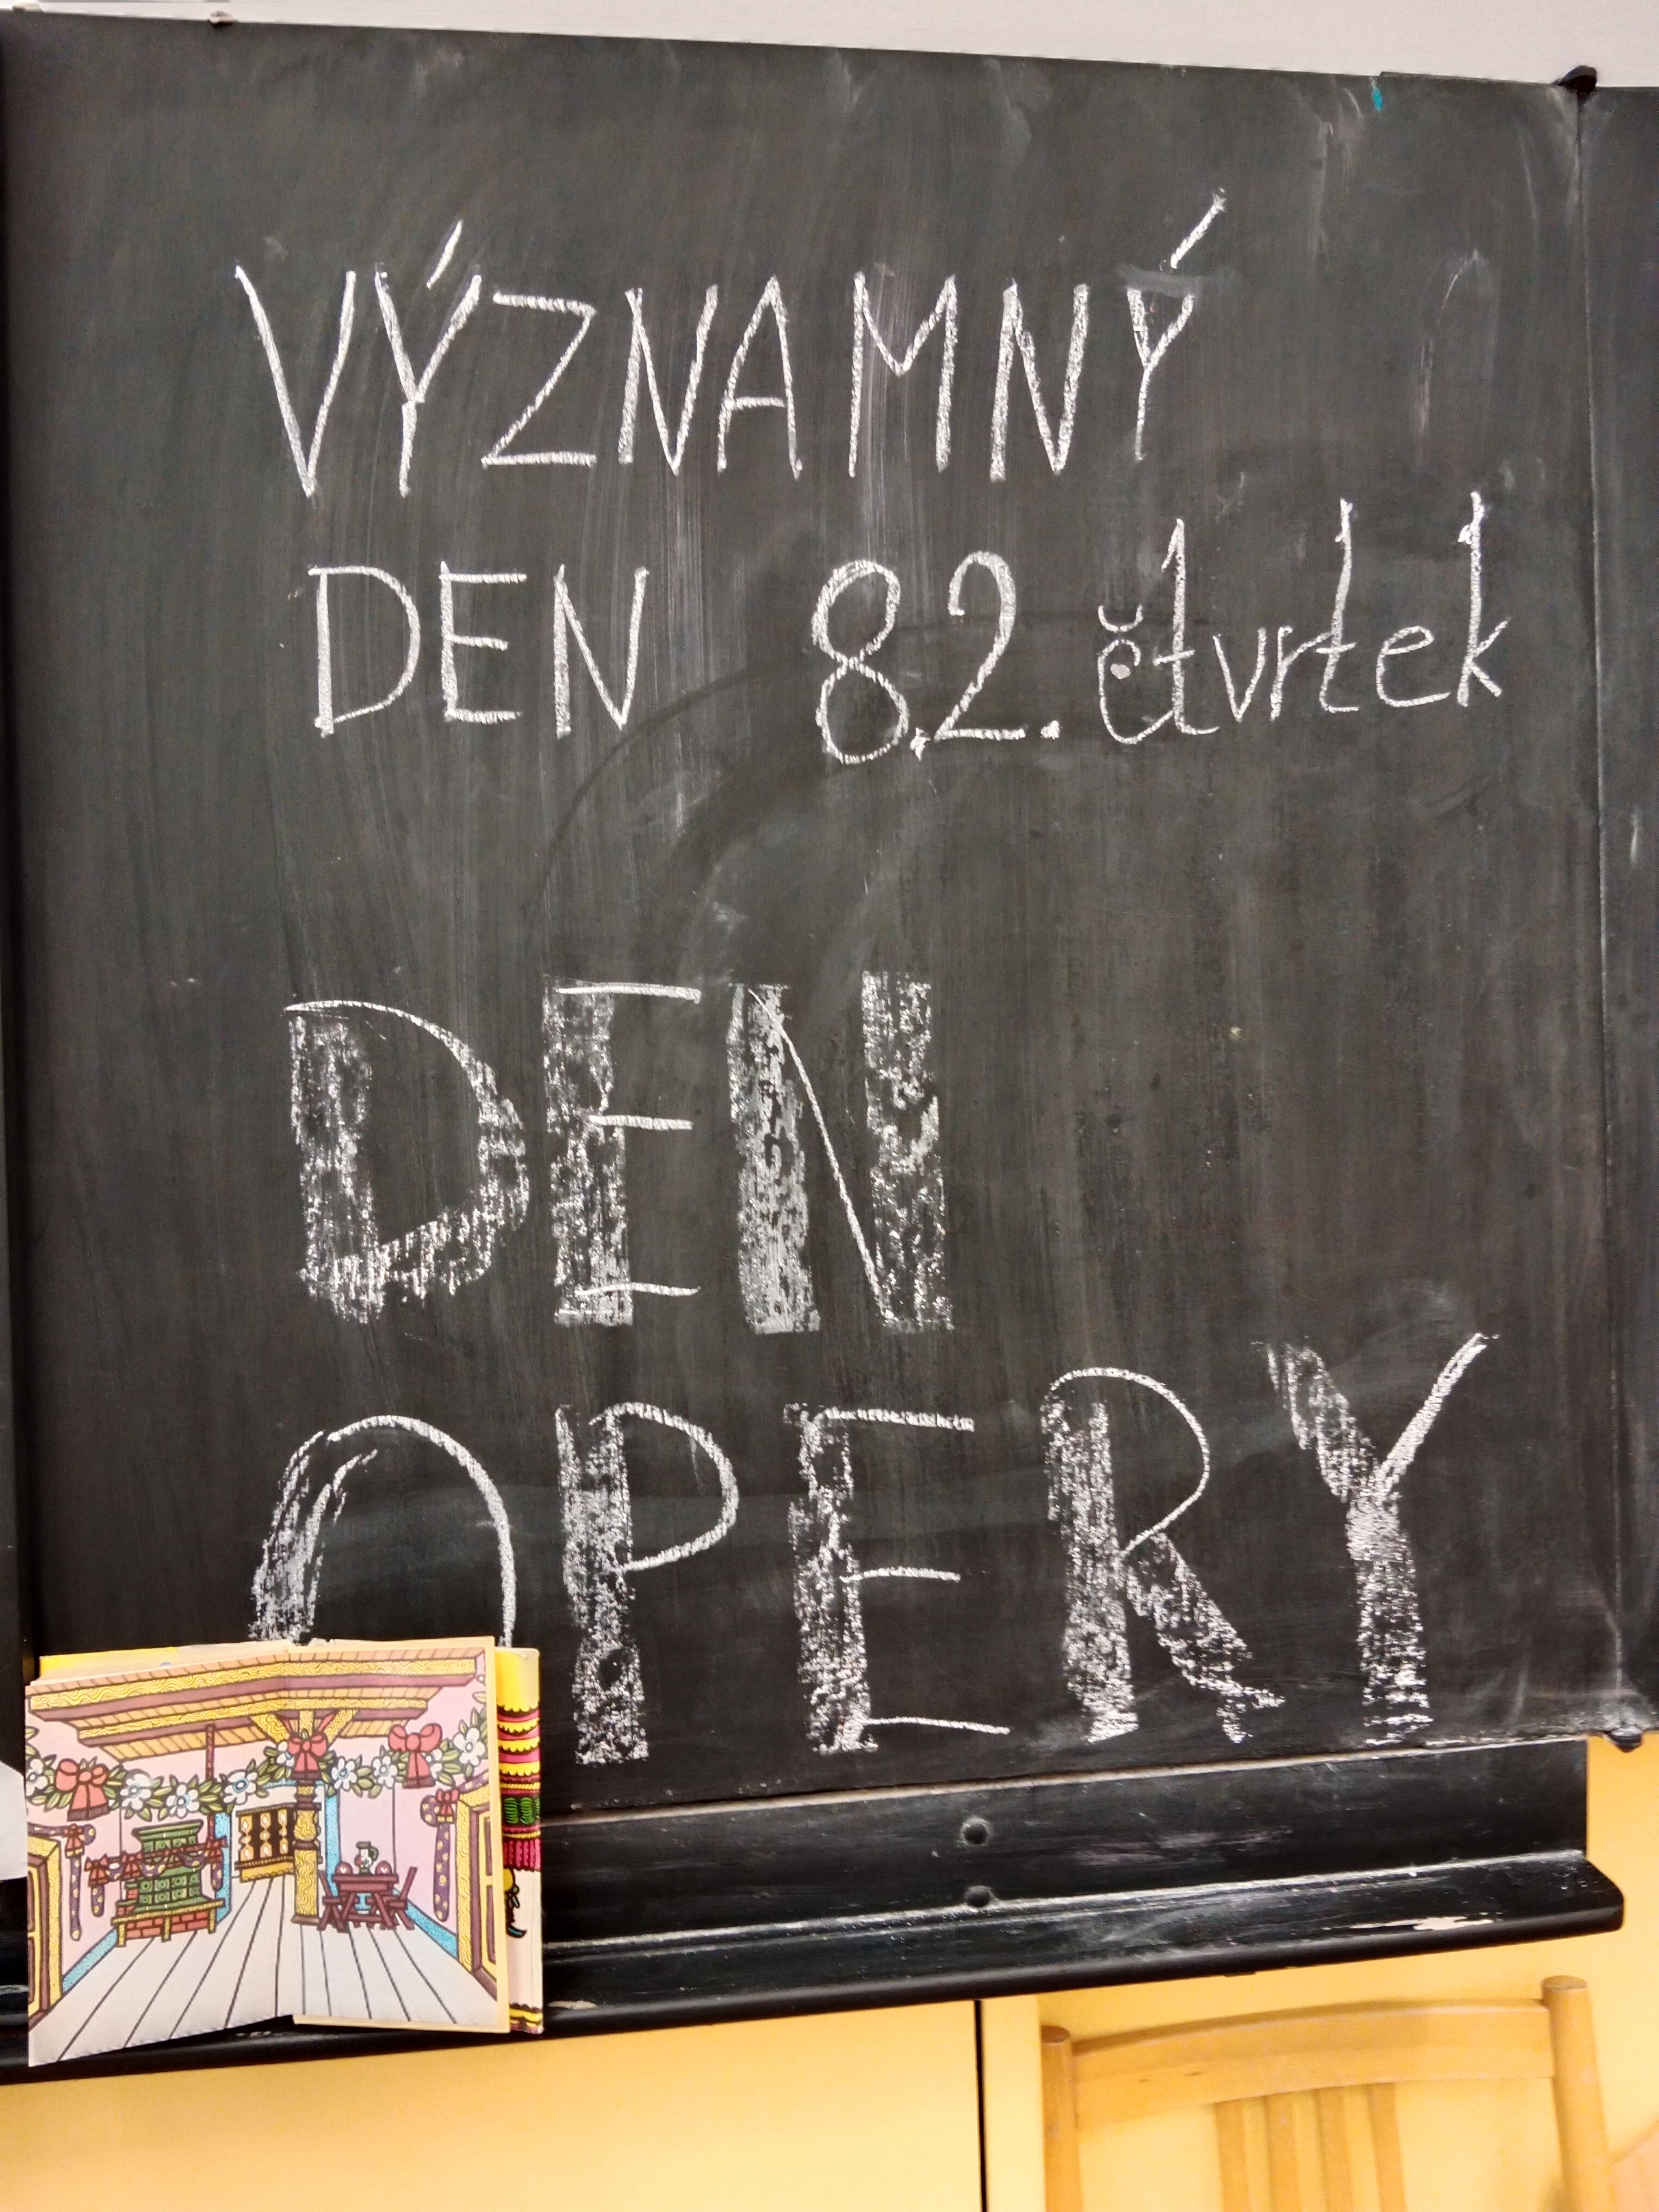 VÝZNAMNÝ
DEN 8.2. čtvrtek
DEN
OPERY